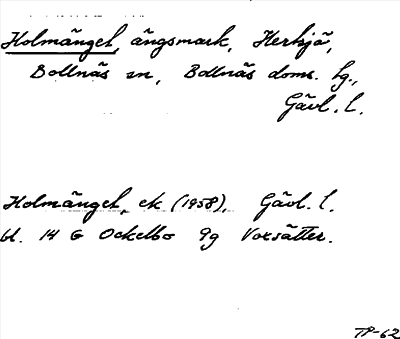 Holmänget, ängsmark, Herksjä,
Bollnäs sn, Bollnäs doms. hg.,
Gävl. l.
Holmänget, ek (1958), Gävl. l.
bl. 14 G Ockelbo 9g Voxsätter.
TP-62